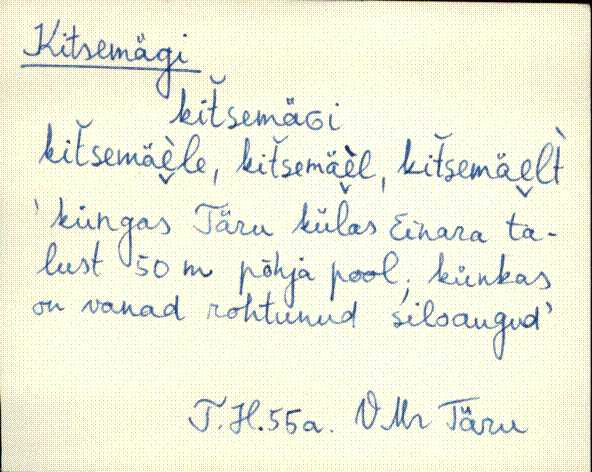 Kitsemägi
kit̆semäGi
kit̆semäè̬le, kit̆semäè̬l, kit̆semäe̬lt̀
'küngas Täru külas Einara ta-
lust 50 m põhja pool; künkas
on vanad rohtunud siloaugud'
T.H.55a. VMr Täru